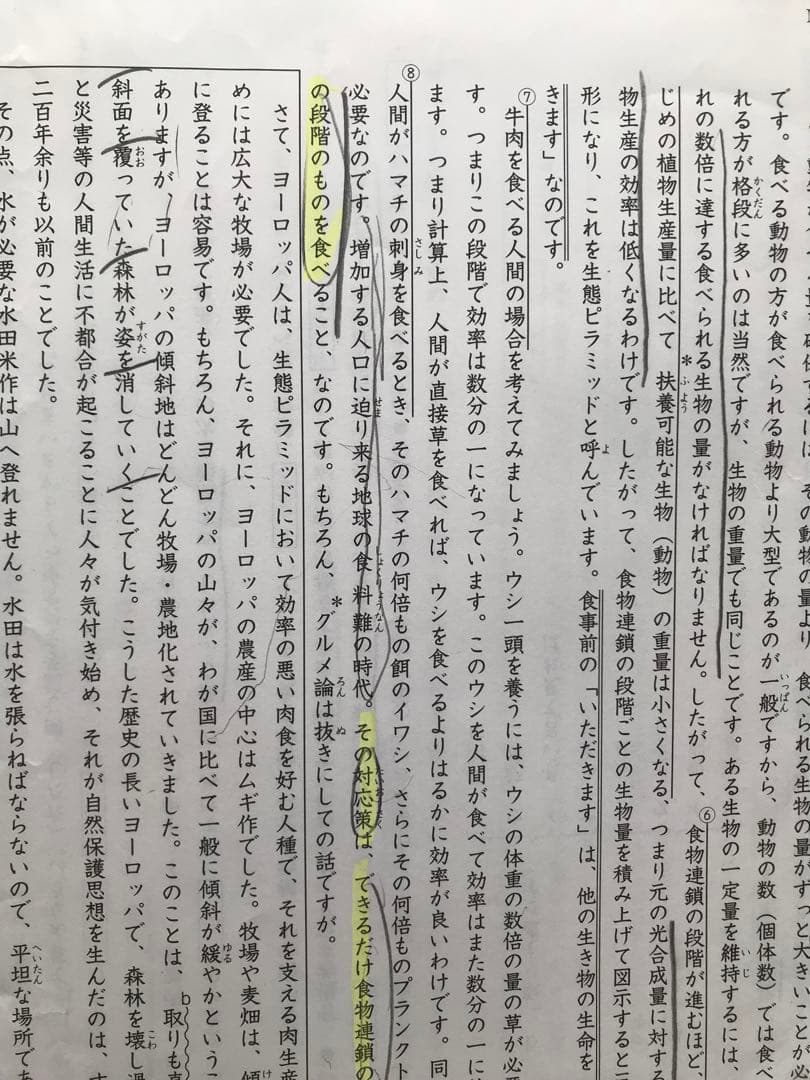 その動物の量より、食べられる生物の量がずっと大きいことが
です。食べる動物の方が食べられる動物より大型であるのが一般ですから、動物の数（個体数）では食べ
れる方が格段に多いのは当然ですが、生物の重量でも同じことです。ある生物の一定量を維持するには、
れの数倍に達する食べられる生物の量がなければなりません。したがって、⑥食物連鎖の段階が進むほど、
じめの植物生産量に比べて＊扶養可能な生物（動物）の重量は小さくなる、つまり元の光合成量に対する
物生産の効率は低くなるわけです。したがって、食物連鎖の段階ごとの生物量を積み上げて図示すると
形になり、これを生態ピラミッドと呼んでいます。食事前の「いただきます」は、他の生き物の生命を
きます」なのです。
⑦牛肉を食べる人間の場合を考えてみましょう。ウシ一頭を養うには、ウシの体重の数倍の量の草が必
す。つまりこの段階で効率は数分の一になっています。このウシを人間が食べて効率はまた数分の一に
ます。つまり計算上、人間が直接草を食べれば、ウシを食べるよりはるかに効率が良いわけです。同
⑧人間がハマチの刺身を食べるとき、そのハマチの何倍もの餌のイワシ、さらにその何倍ものプランクト
必要なのです。増加する人口に迫り来る地球の食料難の時代。その対応策は、できるだけ食物連鎖の
の段階のものを食べること、なのです。もちろん、＊グルメ論は抜きにしての話ですが。
さて、ヨーロッパ人は、生態ピラミッドにおいて効率の悪い肉食を好む人種で、それを支える肉生産
めには広大な牧場が必要でした。それに、ヨーロッパの農産の中心はムギ作でした。牧場や麦畑は、傾
に登ることは容易です。もちろん、ヨーロッパの山々が、わが国に比べて一般に傾斜が緩やかというこ
ありますが、ヨーロッパの傾斜地はどんどん牧場・農地化されていきました。このことは、b取りも直
斜面を覆っていた森林が姿を消していくことでした。こうした歴史の長いヨーロッパで、森林を壊し過
と災害等の人間生活に不都合が起こることに人々が気付き始め、それが自然保護思想を生んだのは、
二百年余りも以前のことでした。
その点、水が必要な水田米作は山へ登れません。水田は水を張らねばならないので、平坦な場所であ